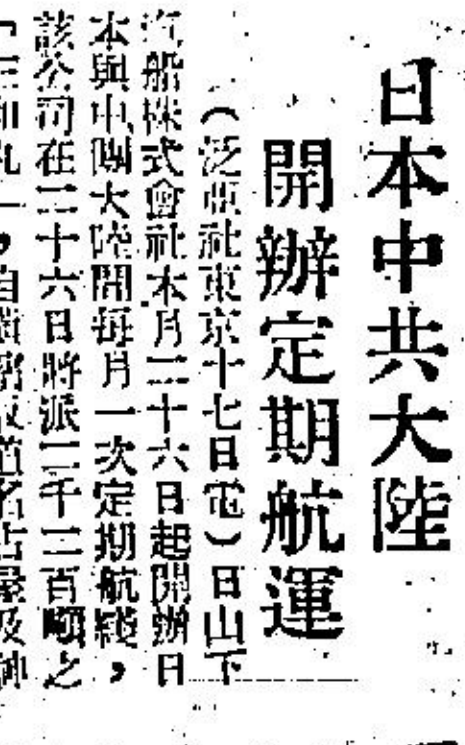 日本中共大陸
開辦定期航運
(泛亞社東京十七日電)日山下
汽船株式會社本月二十六日起開辦日
本與中國大陸間每月一次定期航綫,
該公司在二十六日將派二千二百噸之
「三和丸」,自橫濱取道名古屋及神